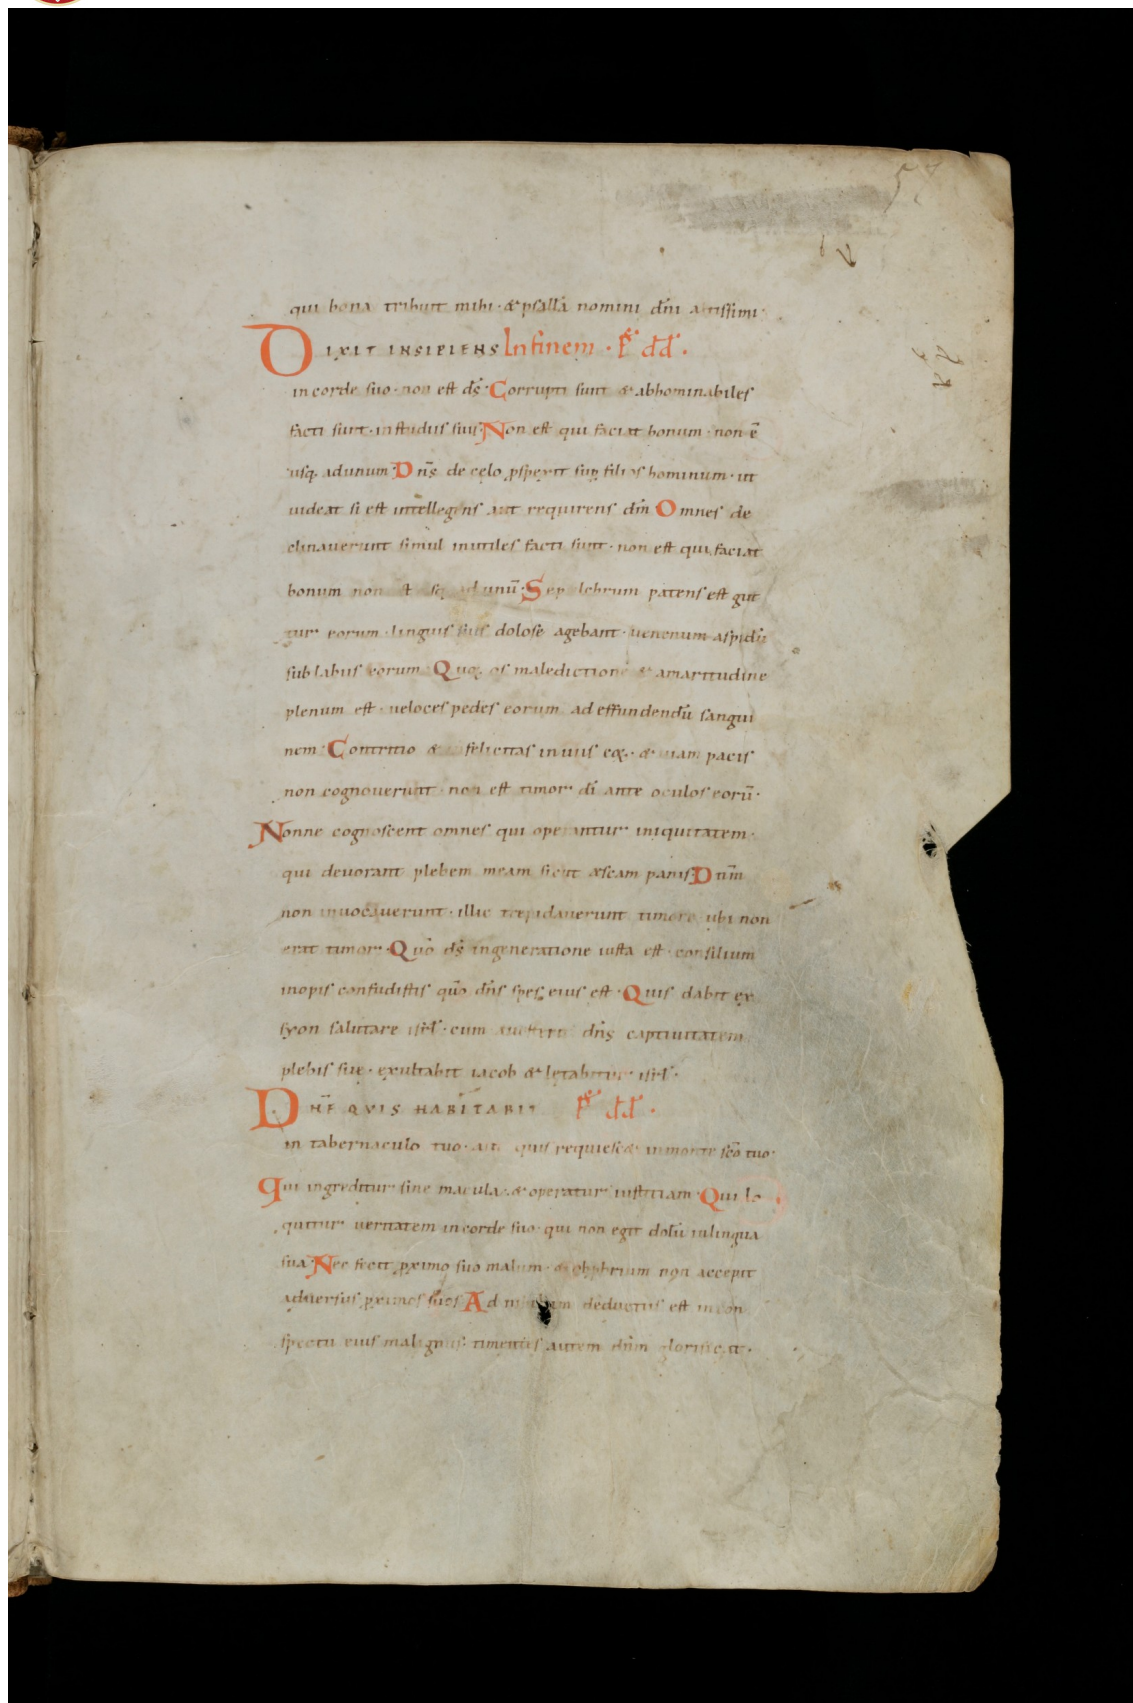 qui bona tribuit mihi · & psallā nomini dn̄i altissimi ·
DIXIT INSIPIENS In finem · ps̄ dd̄ ·
in corde suo · non est ds̄ · Corrupti sunt & abhominabiles
facti sunt · in studiis suis · Non est qui faciat bonum · non ē
usq· ad unum · Dn̄s de cęlo pspexit sup filios hominum · ut
uideat si est intellegens aut requirens dm̄ Omnes de
clinauerunt simul inutiles facti sunt · non est qui faciat
bonum non est usq· ad unū · Sepulchrum patens est gut
tur eorum · linguis suis dolose agebant · uenenum aspidū
sub labiis eorum · Quoꝝ os maledictione & amaritudine
plenum est · ueloces pedes eorum ad effundendū sangui
nem · Contritio & infelicitas in uiis eoꝝ · & uiam pacis
non cognouerunt · non est timor dī ante oculos eorū ·
Nonne cognoscent omnes qui operantur iniquitatem ·
qui deuorant plebem meam sicut æscam panis · Dn̄m
non inuocauerunt · illic trepidauerunt timore ubi non
erat timor · Quō ds̄ in generatione iusta est · consilium
inopis confudistis quō dn̄s spes eius est · Quis dabit ex
syon salutare isrł · cum auerterit dn̄s captiuitatem
plebis suę · exultabit iacob & lętabitur isrł ·
DN̄E QVIS HABITABIT ps̄ dd̄ ·
in tabernaculo tuo · aut quis requiesc& in monte scō tuo ·
Qui ingreditur sine macula · & operatur iustitiam · Qui lo
quitur ueritatem in corde suo · qui non egit dolū in lingua
sua · Nec fecit pximo suo malum · & obpbrium non accepit
aduersus pximos suos Ad nihilum deductus est in con
spectu eius malignus · timentes autem dn̄m glorificat ·